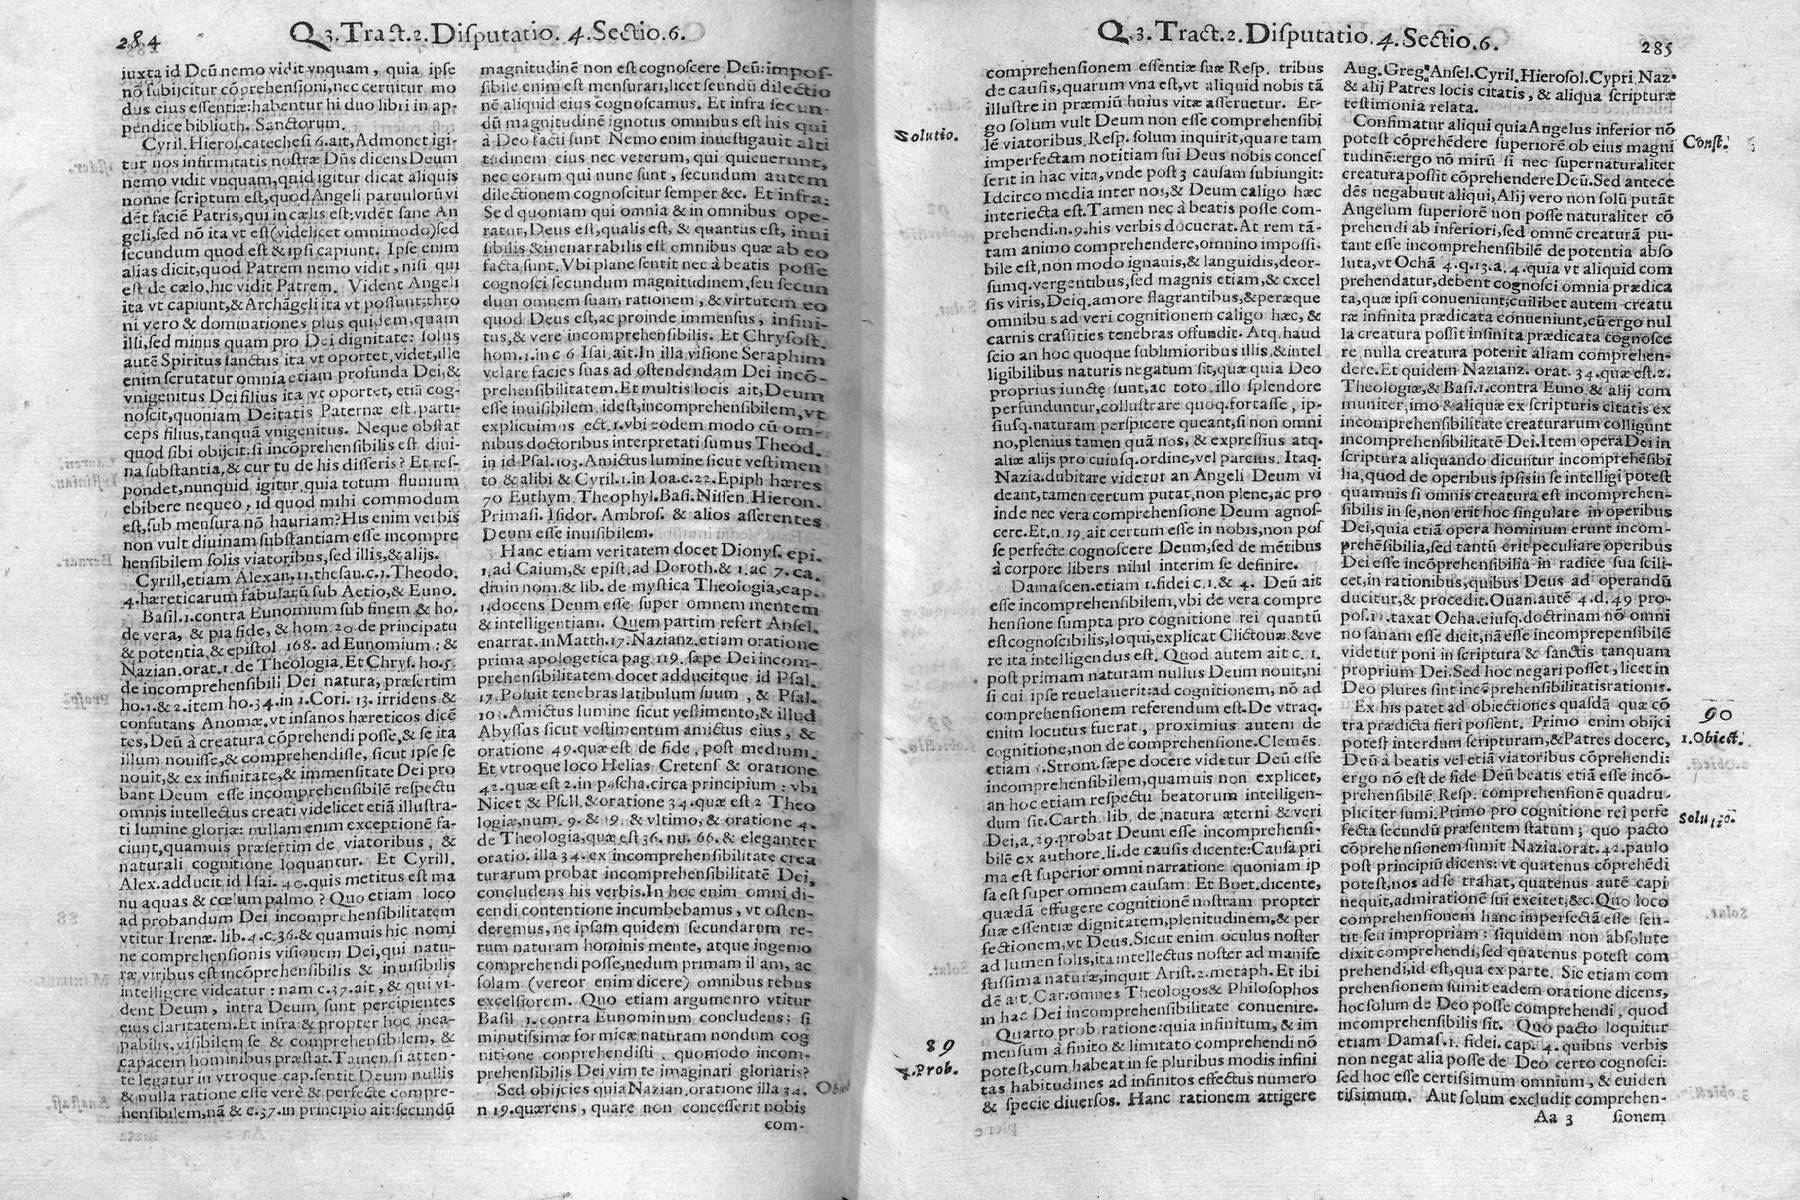 284
Q 3. Tract. 2. Disputatio. 4. Sectio. 6.
iuxta id Deũ nemo vidit vnquam, quia ipse
nõ subijcitur cõprehensioni, nec cernitur mo
dus eius essentiæ: habentur hi duo libri in ap-
pendice biblioth. Sanctorum.
Cyril. Hieros. catechesi 6. ait, Admonet igi-
tur nos infirmitatis nostræ Dñs dicens Deum
nemo vidit vnquam, quid igitur dicat aliquis
nonne scriptum est, quod Angeli paruulorũ vi
dẽt faciẽ Patris, qui in cælis est; vidẽt sane An
geli, sed nõ ita vt est (videlicet omnimodo) sed
secundum quod est & ipsi capiunt. Ipse enim
alias dicit, quod Patrem nemo vidit, nisi qui
est de cælo, hic vidit Patrem. Vident Angeli
ita vt capiunt, & Archãgeli ita vt possunt: thro
ni vero & dominationes plus quidem, quam
illi, sed minus quam pro Dei dignitate: solus
autẽ Spiritus sanctus ita vt oportet, videt, ille
enim scrutatur omnia etiam profunda Dei, &
vnigenitus Dei filius ita vt oportet, etiã cog-
noscit, quoniam Deitatis Paternæ est parti-
ceps filius, tanquã vnigenitus. Neque obstat
quod sibi obijcit: si incoprehensibilis est diui-
na substantia, & cur tu de his disseris? Et res-
pondet, nunquid igitur, quia totum fluuium
ebibere nequeo, id quod mihi commodum
est, sub mensura nõ hauriam? His enim verbis
non vult diuinam substantiam esse incompre
hensibilem solis viatoribus, sed illis, & alijs.
Cyrill, etiam Alexan. 11. thesau. c. 1. Theodo.
4. hæreticarum fabularũ sub Aetio, & Euno.
Basil. 1. contra Eunomium sub finem & ho.
de vera, & pia fide, & hom. 20. de principatu
& potentia, & epistol 168. ad Eunomium: &
Nazian. orat. 1. de Theologia. Et Chrys. ho. 5.
de incomprehensibili Dei natura, præsertim
ho. 1. & 2. item ho. 34. in 1. Cori. 13. irridens &
confutans Anomæ. vt insanos hæreticos dicẽ
tes, Deũ à creatura cõprehendi posse, & se ita
illum nouisse, & comprehendisse, sicut ipse se
nouit, & ex infinitate, & immensitate Dei pro
bant Deum esse incomprehensibilẽ respectu
omnis intellectus creati videlicet etiã illustra-
ti lumine gloriæ: nullam enim exceptionẽ fa-
ciunt, quamuis præsertim de viatoribus, &
naturali cognitione loquantur. Et Cyrill.
Alex. adducit id Isai. 40. quis metitus est ma
nu aquas & cœlum palmo? Quo etiam loco
ad probandum Dei incomprehensibilitatem
vtitur Irenæ. lib. 4. c. 36. & quamuis hic nomi
ne comprehensionis visionem Dei, qui natu-
ræ viribus est incõprehensibilis & inuisibilis
intelligere videatur: nam c. 37. ait, & qui vi-
dent Deum, intra Deum sunt percipientes
eius claritatem. Et infra & propter hoc inca-
pabilis. visibilem se & comprehensibilem, &
capacem hominibus præstat. Tamen si atten-
te legatur in vtroque cap. sentit Deum nullis
& nulla ratione esse verè & perfecte compre-
hensibilem, nã & c. 37. in principio ait: secundũ
magnitudinẽ non est cognoscere Deũ: impos-
sibile enim est mensurari, licet secundũ dilectio
nẽ aliquid eius cognoscamus. Et infra secun-
dũ magnitudinẽ ignotus omnibus est his qui
à Deo facti sunt Nemo enim inuestigauit alti
tudinem eius nec veterum, qui quieuerunt,
nec eorum qui nunc sunt, secundum autem
dilectionem cognoscitur semper &c. Et infra:
Sed quoniam qui omnia & in omnibus ope-
ratur, Deus est, qualis est, & quantus est, inui
sibilis & inenarrabilis est omnibus quæ ab eo
facta sunt. Vbi plane sentit nec à beatis posse
cognosci secundum magnitudinem, seu secun
dum omnem suam, rationem, & virtutem eo
quod Deus est, ac proinde immensus, infini-
tus, & vere incomprehensibilis. Et Chrysost.
hom. 1. in c 6 Isai. ait. In illa visione Seraphim
velare facies suas ad ostendendam Dei incõ-
prehensibilitatem. Et multis locis ait, Deum
esse inuisibilem, idest, incomprehensibilem, vt
explicuimus ect. 1. vbi eodem modo cũ om-
nibus doctoribus interpretati sumus Theod.
in id Psal. 103. Amictus lumine sicut vestimen
to & alibi & Cyril. 1. in Ioa. c. 22. Epiph hæres
70 Euthym. Theophyl. Basi. Nissen. Hieron.
Primasi. Isidor. Ambros. & alios asserentes
Deum esse inuisibilem.
Hanc etiam veritatem docet Dionys. epi.
1. ad Caium, & epist. ad Doroth. & 1. ac 7. ca.
diuin nom. & lib. de mystica Theologia, cap.
1. docens Deum esse super omnem mentem
& intelligentiam. Quem partim refert Ansel.
enarrat. in Matth. 17. Nazianz. etiam oratione
prima apologetica pag. 119. sæpe Dei incom-
prehensibilitatem docet adducitque id Psal.
17. Posuit tenebras latibulum suum, & Psal.
103. Amictus lumine sicut vestimento, & illud
Abyssus sicut vestimentum amictus eius, &
oratione 49. quæ est de fide, post medium.
Et vtroque loco Helias Cretens & oratione
42. quæ est 2. in pascha. circa principium: vbi
Nicet & Psell. & oratione 34. quæ est 2 Theo
logiæ, num. 9. & 19. & vltimo, & oratione 4.
de Theologia, quæ est 36. nu. 66. & eleganter
oratio. illa 34. ex incomprehensibilitate crea
turarum probat incomprehensibilitatẽ Dei,
concludens his verbis. In hoc enim omni di-
cendi contentione incumbebamus, vt osten-
deremus, ne ipsam quidem secundarum re-
rum naturam hominis mente, atque ingenio
comprehendi posse, nedum primam illam, ac
solam (vereor enim dicere) omnibus rebus
excelsiorem. Quo etiam argumenro vtitur
Basil. 1. contra Eunominum concludens: si
minutissimæ formicæ naturam nondum cog
nitione conprehendisti, quomodo incom-
prehensibilis Dei vim te imaginari gloriaris?
Sed obijcies quia Nazian. oratione illa 34.
n 19. quærens, quare non concesserit nobis
com-
Obie
Q. 3. Tract. 2. Disputatio. 4. Sectio. 6.
285
comprehensionem essentiæ suæ Resp. tribus
de causis, quarum vna est, vt aliquid nobis tã
illustre in præmiũ huius vitæ asseruetur. Er-
go solum vult Deum non esse comprehensibi
lẽ viatoribus. Resp. solum inquirit, quare tam
imperfectam notitiam sui Deus nobis conces
serit in hac vita, vnde post 3 causam subiungit:
Idcirco media inter nos, & Deum caligo hæc
interiecta est. Tamen nec à beatis posse com-
prehendi. n. 9. his verbis docuerat. At rem tã-
tam animo comprehendere, omnino impossi-
bile est, non modo ignauis, & languidis, deor-
sumq. vergentibus, sed magnis etiam, & excel
sis viris, Deiq. amore flagrantibus, & peræque
omnibus ad veri cognitionem caligo hæc, &
carnis crassities tenebras offundit. Atq. haud
scio an hoc quoque sublimioribus illis, & intel
ligibilibus naturis negatum sit, quæ quia Deo
proprius iunctę sunt, ac toto illo splendore
perfunduntur, collustrare quoq. fortasse, ip-
siusq. naturam perspicere queant, si non omni
no, plenius tamen quã nos, & expressius atq.
aliæ alijs pro cuiusq. ordine, vel parcius. Itaq.
Nazia. dubitare videtur an Angeli Deum vi
deant, tamen certum putat, non plene, ac pro
inde nec vera comprehensione Deum agnos-
cere. Et. n. 19. ait certum esse in nobis, non pos
se perfecte cognoscere Deum, sed de mẽtibus
à corpore liberis nihil interim se definire.
Damascen. etiam 1. fidei c. 1. & 4. Deũ ait
esse incomprehensibilem, vbi de vera compre
hensione sumpta pro cognitione rei quantũ
est cognoscibilis, loqui, explicat Clictouæ. & ve
re ita intelligendus est. Quod autem ait c. 1.
post primam naturam nullus Deum nouit, ni
si cui ipse reuelauerit: ad cognitionem, nõ ad
comprehensionem referendum est. De vtraq.
enim locutus fuerat, proximius autem de
cognitione, non de comprehensione. Clemẽs.
etiam 5. Strom. sæpe docere videtur Deũ esse
incomprehensibilem, quamuis non explicet,
an hoc etiam respectu beatorum intelligen-
dum sit. Carth. lib. de natura æterni & veri
Dei, a. 29. probat Deum esse incomprehensi-
bilẽ ex authore. li. de causis dicente: Causa pri
ma est superior omni narratione quoniam ip
sa est super omnem causam. Et Boet. dicente,
quædã effugere cognitionẽ nostram propter
suæ essentiæ dignitatem, plenitudinem, & per
fectionem, vt Deus. Sicut enim oculus noster
ad lumen solis, ita intellectus noster ad manife
stissima naturæ, inquit Arist. 2. metaph. Et ibi
dẽ ait. Car: omnes Theologos & Philosophos
in hac Dei incomprehensibilitate conuenire.
Quarto prob. ratione: quia infinitum, & im
mensum à finito & limitato comprehendi nõ
potest, cum habeat in se pluribus modis infini
tas habitudines ad infinitos effectus numero
& specie diuersos. Hanc rationem attigere
Solutio.
89
4. Prob.
Aug. Greg. Ansel. Cyril. Hierosol. Cypri. Naz.
& alij Patres locis citatis, & aliqua scripturæ
testimonia relata.
Confimatur aliqui quia Angelus inferior nõ
potest cõprehẽdere superiorẽ ob eius magni
tudinẽ: ergo nõ mirũ si nec supernaturaliter
creatura possit cõprehendere Deũ. Sed antece
dẽs negabuut aliqui, Alij vero non solũ putãt
Angelum superiorẽ non posse naturaliter cõ
prehendi ab inferiori, sed omnẽ creaturã pu-
tant esse incomprehensibilẽ de potentia abso
luta, vt Ochã 4. q. 13. a. 4. quia vt aliquid com
prehendatur, debent cognosci omnia prædica
ta, quæ ipsi conueniunt; cuilibet autem creatu
ræ infinita prædicata conueniunt, cũ ergo nul
la creatura possit infinita prædicata cognosce
re, nulla creatura poterit aliam comprehen-
dere. Et quidem Nazianz. orat. 34. quæ est. 2.
Theologiæ, & Basi. 1. contra Euno. & alij com
muniter, imo & aliquæ ex scripturis citatis ex
incomprehensibilitate creaturarum colligunt
incomprehensibilitatẽ Dei. Item opera Dei in
scriptura aliquando dicuntur incomprehẽsibi
lia, quod de operibus ipsis in se intelligi potest
quamuis si omnis creatura est incomprehen-
sibilis in se, non erit hoc singulare in operibus
Dei, quia etiã opera hominum erunt incom-
prehẽsibilia, sed tantũ erit peculiare operibus
Dei esse incõprehensibilia in radice sua scili-
cet, in rationibus, quibus Deus ad operandũ
ducitur, & procedit. Ouan. autẽ 4. d. 49 pro-
pos. 12. taxat Ocha. eiusq. doctrinam nõ omni
no sanam esse dicit, nã esse incomprepensibilẽ
videtur poni in scriptura & sanctis tanquam
proprium Dei. Sed hoc negari posset, licet in
Deo plures sint incẽprehensibilitatis rationis.
Ex his patet ad obiectiones quasdã quæ cõ
tra prædicta fieri possent. Primo enim obijci
potest interdum scripturam, & Patres docere,
Deũ à beatis vel etiã viatoribus cõprehendi:
ergo nõ est de fide Deũ beatis etiã esse incõ-
prehensibilẽ. Resp. comprehensionẽ quadru-
pliciter sumi. Primo pro cognitione rei perfe
fecta secundũ præsentem statum; quo pacto
cõprehensionem sumit Nazia. orat. 42. paulo
post principiũ dicens: vt quatenus cõprehẽdi
potest, nos ad se trahat, quatenus autẽ capi
nequit, admirationẽ sui excitet, &c. Quo loco
comprehensionem hanc imperfectã esse sen-
tit seu impropriam: siquidem non absolute
dixit comprehendi, sed quatenus potest com
prehendi, id est, qua ex parte. Sic etiam com
prehensionem sumit eadem oratione dicens,
hoc solum de Deo posse comprehendi, quod
incomprehensibilis sit. Quo pacto loquitur
etiam Damas. 1. fidei. cap. 4. quibus verbis
non negat alia posse de Deo certo cognosci:
sed hoc esse certissimum omnium, & euiden
tissimum. Aut solum excludit comprehen-
Aa 3 sionem
Const.
90
1. Obiect.
Solutio.